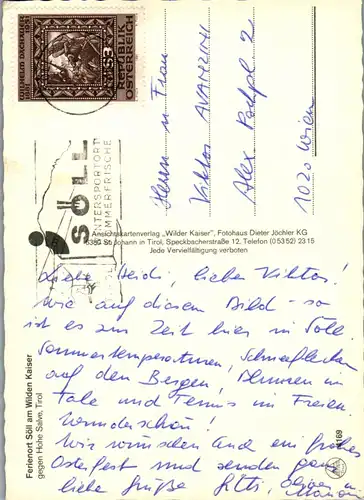 REPUBLIK
ÖSTERREICH
S 3
SÖLL
WINTERSPORTORT
SOMMERFRISCHE
Herrn u Frau
Viktor AVANZINI
Alex Poch pl 2
1020 Wien
Ansichtskartenverlag „Wilder Kaiser", Fotohaus Dieter Jöchler KG
6380 St. Johann in Tirol, Speckbacherstraße 12, Telefon (0 53 52) 23 15
Jede Vervielfältigung verboten
Ferienort Söll am Wilden Kaiser
gegen Hohe Salve, Tirol
Liebe Heidi, lieber Viktor!
Wie auf diesem Bild - so
ist es zur Zeit hier in Söll.
Sommertemperaturen, Schneeflecken
auf den Bergen, Blumen im
Tale und Tennis im Freien.
wunderschön!
Wir wünschen Euch ein frohes
Osterfest und senden ganz
liebe Grüße